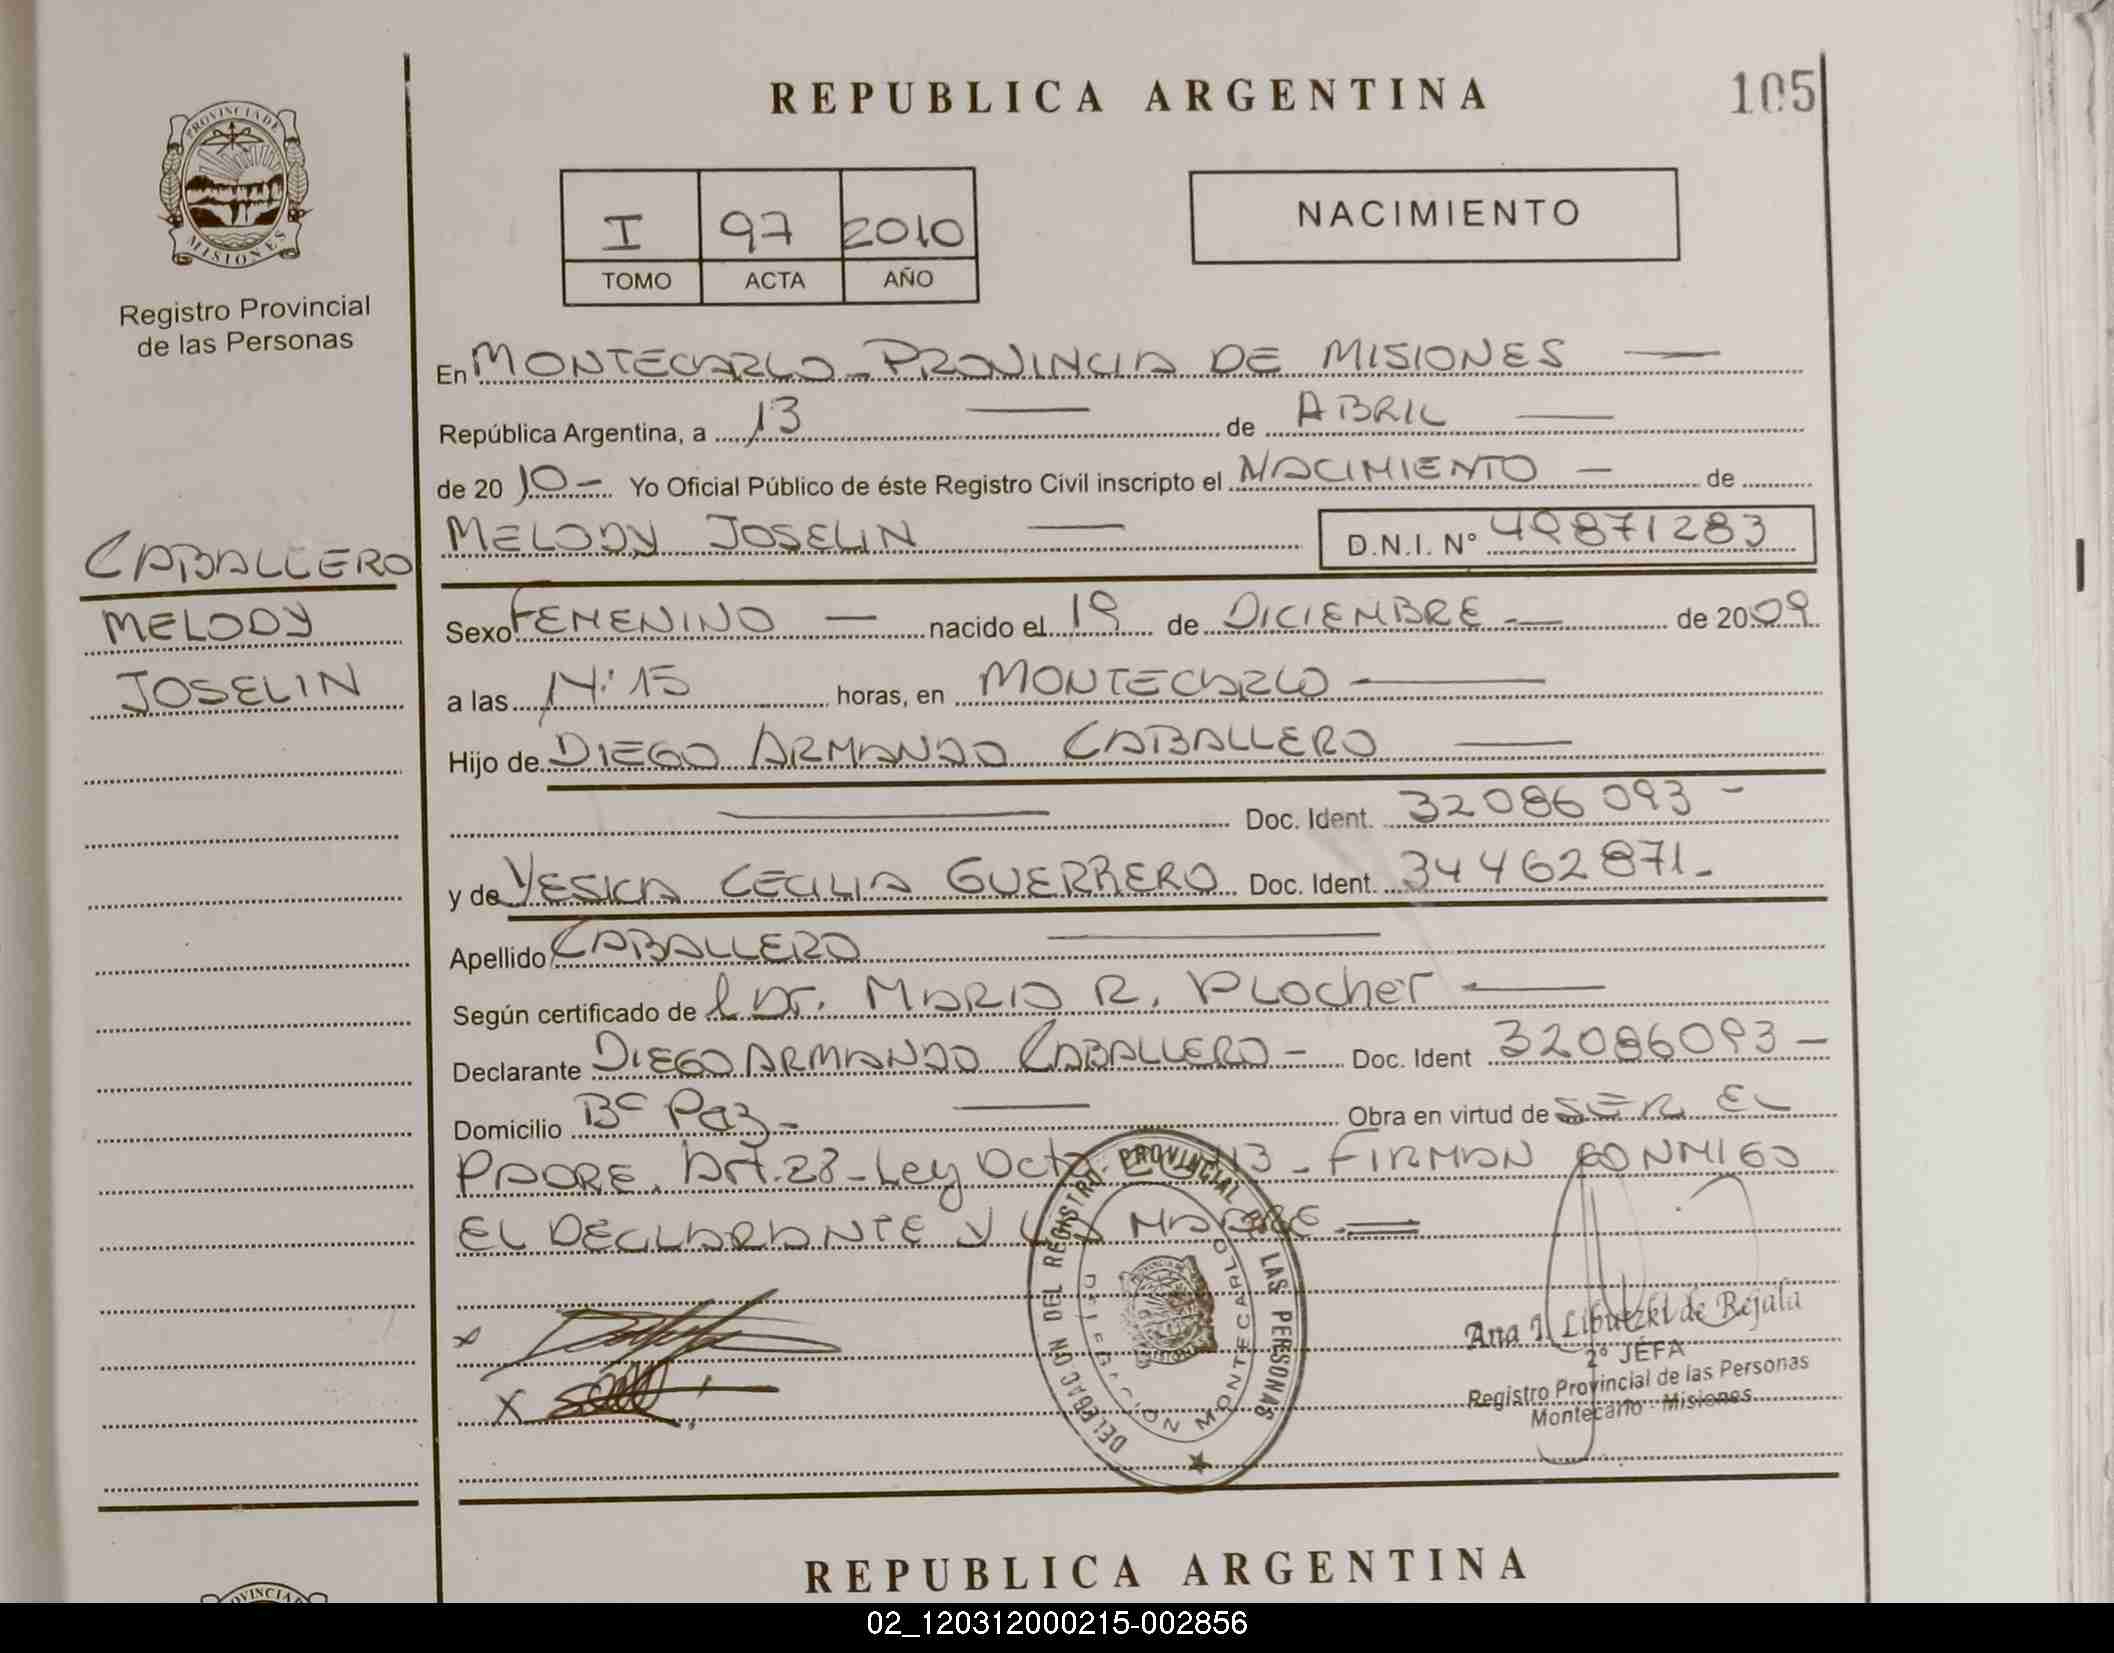 REPUBLICA ARGENTINA
105
PROVINCIA DE
MISIONES
Registro Provincial
de las Personas
I 97 2010
TOMO ACTA AÑO
NACIMIENTO
En MONTECARLO - PROVINCIA DE MISIONES
República Argentina, a 13 de ABRIL
de 2010 - Yo Oficial Público de éste Registro Civil inscripto el NACIMIENTO - de
MELODY JOSELIN D.N.I. N° 49871283
CABALLERO
MELODY
JOSELIN
Sexo FEMENINO - nacido el 19 de DICIEMBRE - de 2009
a las 14:15 horas, en MONTECARLO
Hijo de DIEGO ARMANDO CABALLERO
Doc. Ident. 32086093 -
y de YESICA CECILIA GUERRERO Doc. Ident. 34462871 -
Apellido CABALLERO
Según certificado de l Dr. MARIO R. PLocher
Declarante DIEGO ARMANDO CABALLERO - Doc. Ident 32086093 -
Domicilio B° Paz - Obra en virtud de SER EL
PADRE. Art. 28 - Ley Octa 13 - FIRMAN CONMIGO
EL DECLARANTE Y LA MADRE
x
x
DELEGACION DEL REGISTRO PROVINCIAL DE LAS PERSONAS
DELEGACION MONTECARLO
Ana I. Libutzki de Rejala
2° JEFA
Registro Provincial de las Personas
Montecarlo - Misiones
REPUBLICA ARGENTINA
02_120312000215-002856